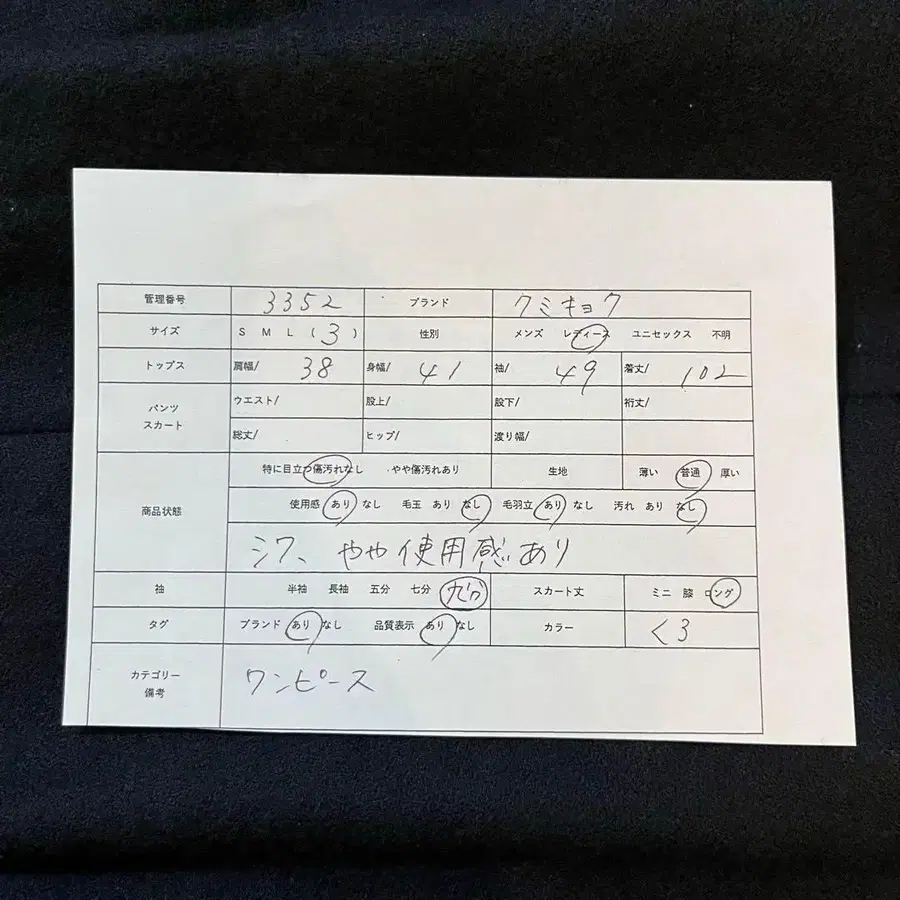 管理番号 3352 ブランド クミキョク
サイズ S M L ( 3 ) 性別 メンズ レディース ユニセックス 不明
トップス 肩幅/ 38 身幅/ 41 袖/ 49 着丈/ 102
パンツ スカート ウエスト/ 股上/ 股下/ 裄丈/
総丈/ ヒップ/ 渡り幅/
商品状態 特に目立つ傷汚れなし ・やや傷汚れあり 生地 薄い 普通 厚い
使用感 あり なし 毛玉 あり なし 毛羽立 あり なし 汚れ あり なし
シワ、やや使用感あり
袖 半袖 長袖 五分 七分 九分 スカート丈 ミニ 膝 ロング
タグ ブランド あり なし 品質表示 あり なし カラー くろ
カテゴリー 備考 ワンピース